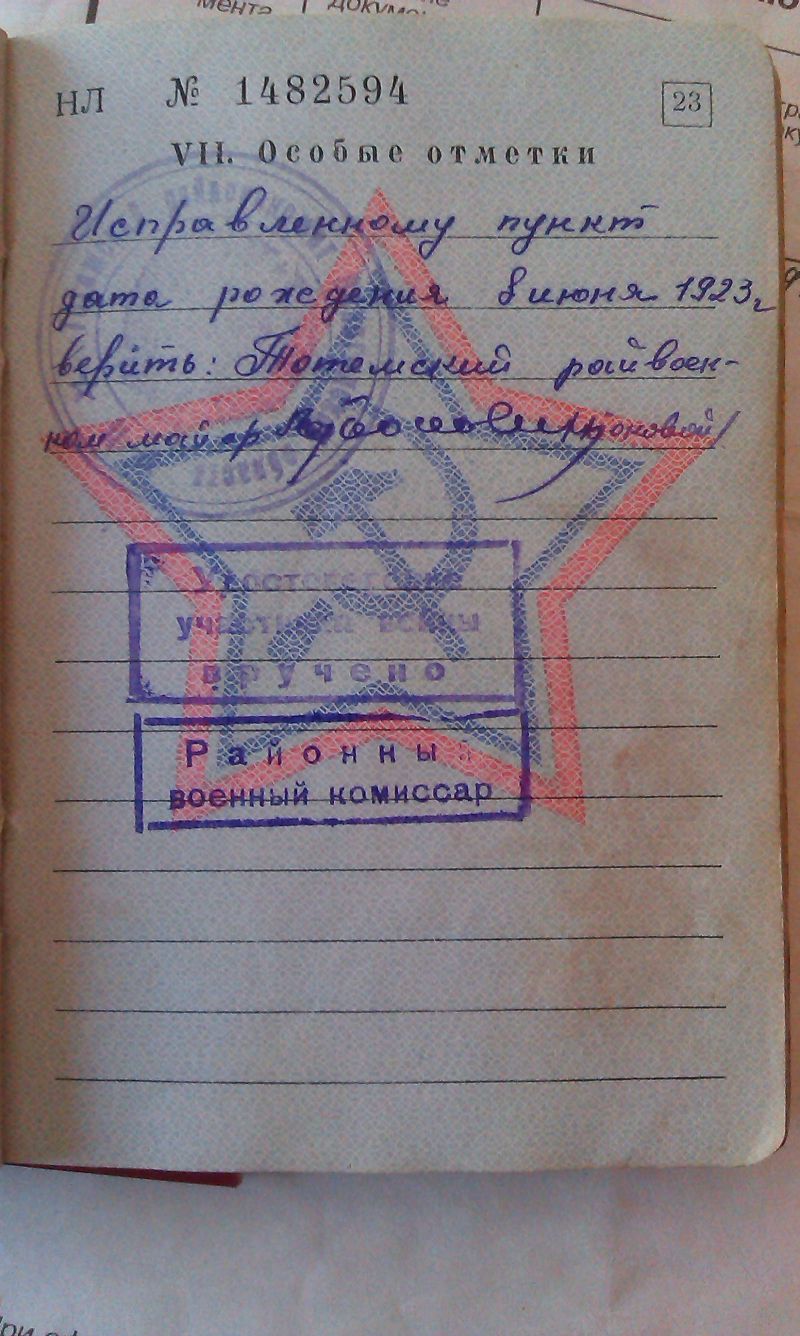 мента
НЛ № 1482594
23
VII. Особые отметки
Исправленному пункт
дата рождения 8 июня 1923г
верить: Тотемский райвоен-
ком майор
Удостоверение
участника войны
вручено
Районный
военный комиссар